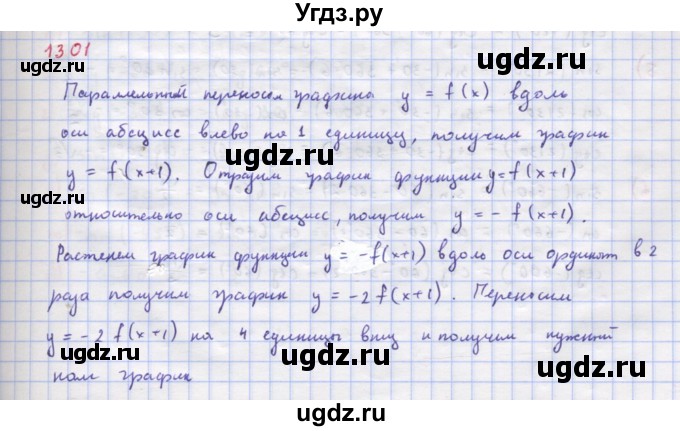 Угдз.ру
1301
Параллельный переносим графика y = f(x) вдоль
оси абсцисс влево на 1 единицу, получим график
y = f(x+1). Отразим график функции y=f(x+1)
относительно оси абсцисс, получим y = - f(x+1).
Растенем график функции y = -f(x+1) вдоль оси ординат в 2
раза получим график y = -2 f(x+1). Переносим
y = -2 f(x+1) на 4 единицы вниз и получим нужный
нам график
ugdz.ru
ugdz.ru
ugdz.ru
ugdz.ru
ugdz.ru
ugdz.ru
ugdz.ru
ugdz.ru
ugdz.ru
ugdz.ru